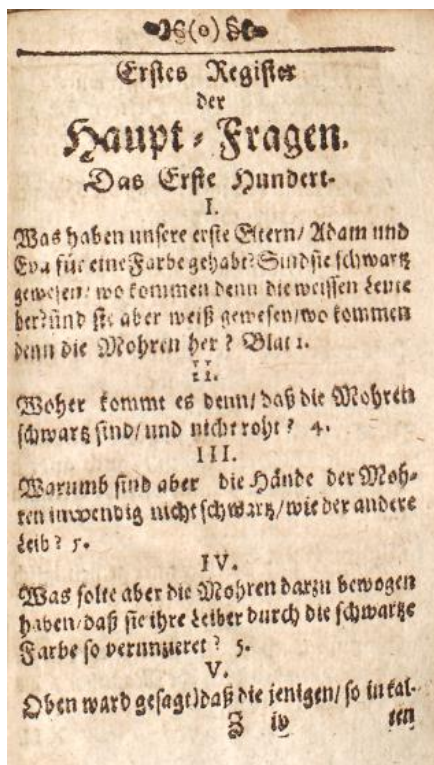 (o)
Erstes Register
der
Haupt-Fragen.
Das Erste Hundert.
I.
Was haben unsere erste Eltern/ Adam und
Eva für eine Farbe gehabt? Sind sie schwartz
gewesen/ wo kommen denn die weissen Leute
her? sind sie aber weiß gewesen/ wo kommen
denn die Mohren her? Blat 1.
II.
Woher kommt es denn/ daß die Mohren
schwartz sind/ und nicht roht? 4.
III.
Warumb sind aber die Hände der Moh-
ren inwendig nicht schwartz/ wie der andere
Leib? 5.
IV.
Was solte aber die Mohren darzu bewogen
haben/ daß sie ihre Leiber durch die schwartze
Farbe so verunzieret? 5.
V.
Oben ward gesagt/ daß die jenigen/ so in kal-
Z iv ten